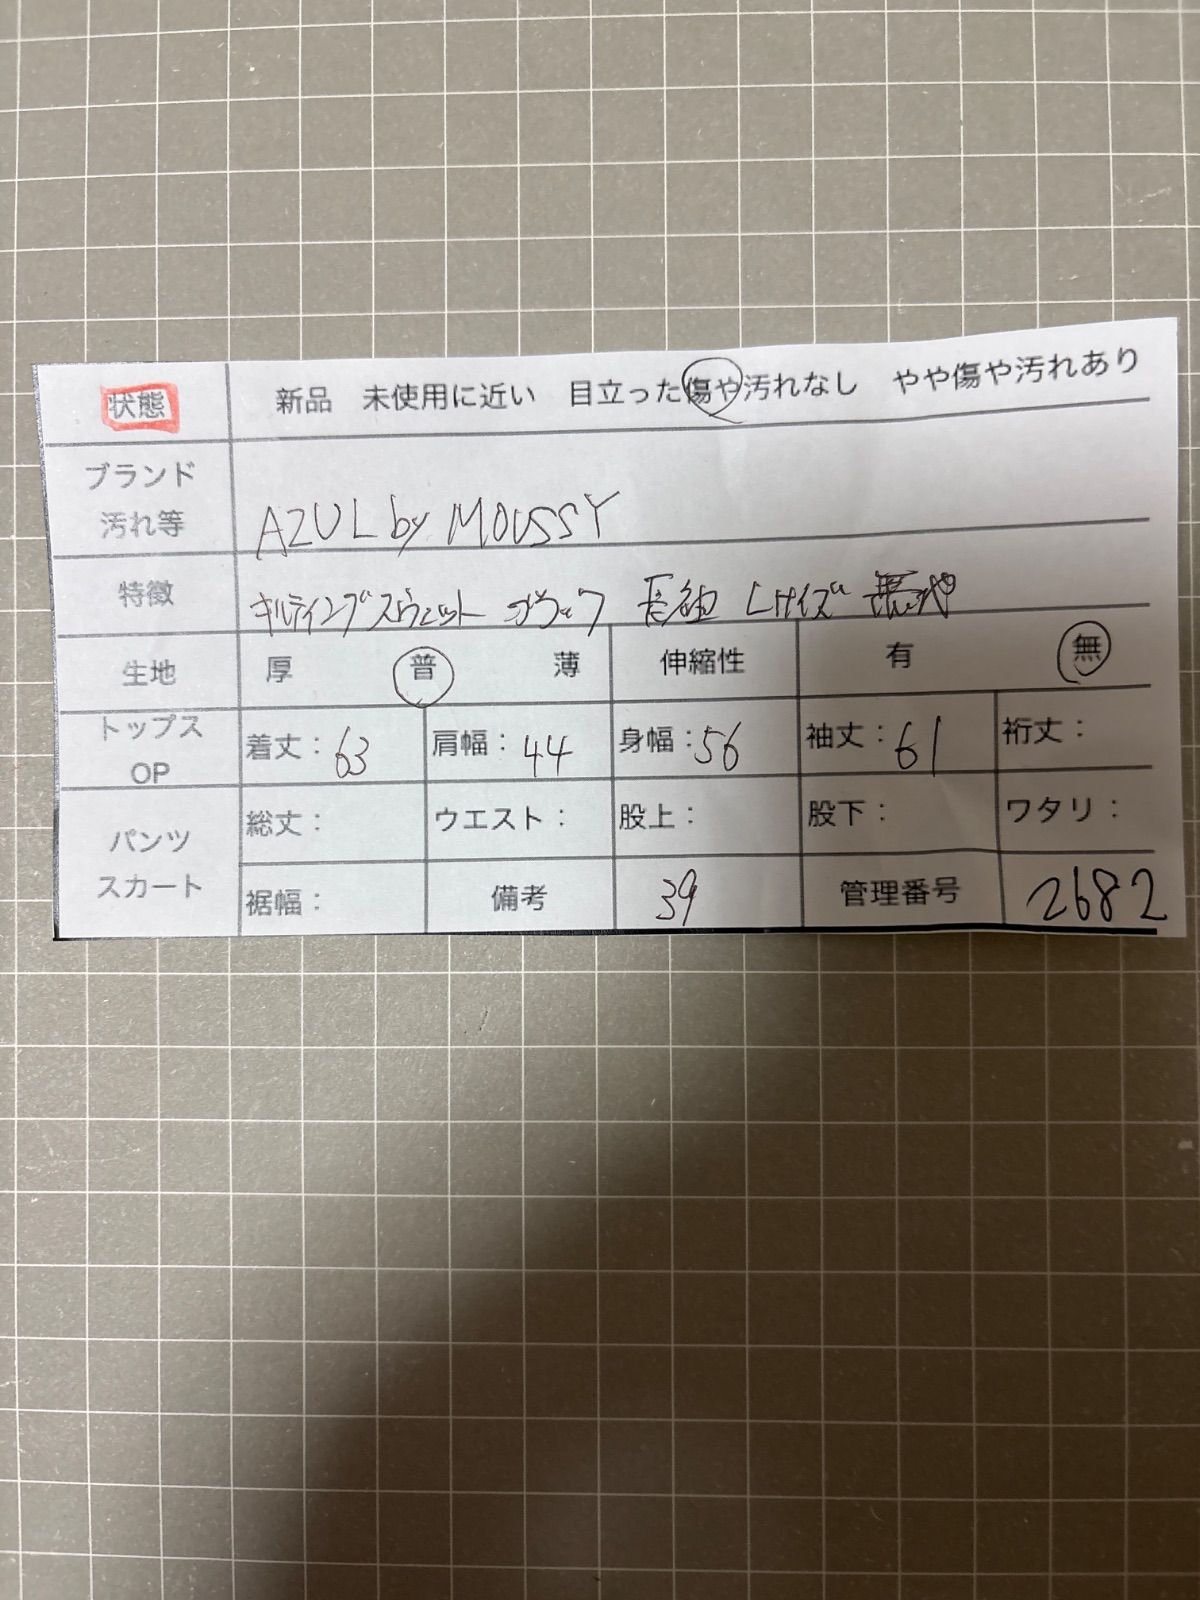 状態 新品 未使用に近い 目立った傷や汚れなし やや傷や汚れあり
ブランド
汚れ等 AZUL by MOUSSY
特徴 キルティングスウェット ブラック 長袖 Lサイズ 無地
生地 厚 普 薄 伸縮性 有 無
トップス
OP 着丈：63 肩幅：44 身幅：56 袖丈：61 裄丈：
パンツ
スカート 総丈： ウエスト： 股上： 股下： ワタリ：
裾幅： 備考 39 管理番号 2682